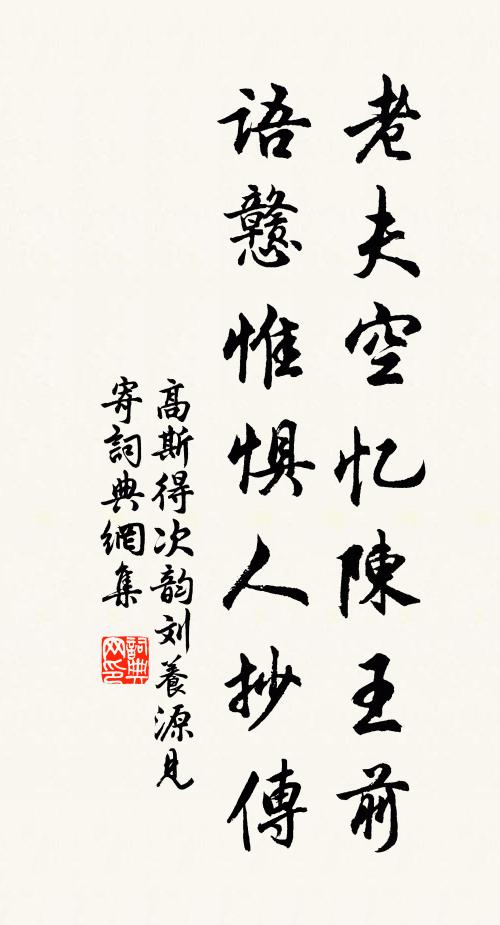 老夫空忆陳王前
語戇惟惧人抄傳
高斯得次韵刘養源見
寄詞典網集
詞典
网印